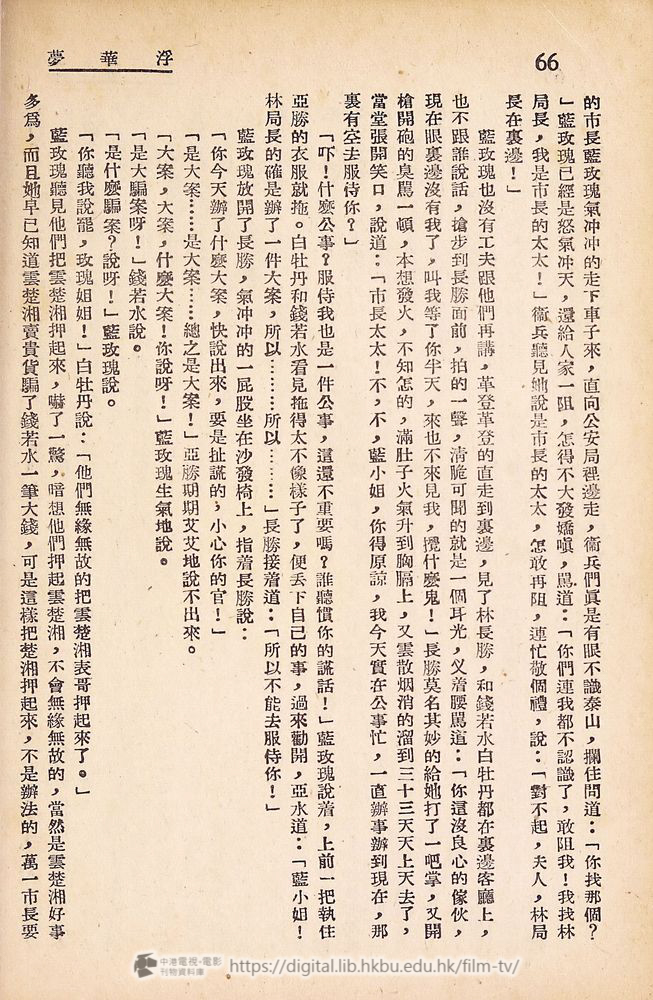 66
浮華夢
的市長藍玫瑰氣冲冲的走下車子來，直向公安局裡邊走，衞兵們眞是有眼不識泰山，攔住問道：「你找那個？
」藍玫瑰已經是怒氣冲天，還給人家一阻，怎得不大發嬌嗔，罵道：「你們連我都不認識了，敢阻我！我找林
局長，我是市長的太太！」衞兵聽見她說是市長的太太，怎敢再阻，連忙敬個禮，說：「對不起，夫人，林局
長在裏邊！」
藍玫瑰也沒有工夫跟他們再講，革登革登的直走到裏邊，見了林長勝，和錢若水白牡丹都在裏邊客廳上，
也不跟誰說話，搶步到長勝面前，拍的一聲，淸脆可聞的就是一個耳光，叉着腰罵道：「你這沒良心的傢伙，
現在眼裏邊沒有我了，叫我等了你半天，來也不來見我，攪什麽鬼！」長勝莫名其妙的給她打了一吧掌，又開
槍開砲的臭罵一頓，本想發火，不知怎的，滿肚子火氣升到胸膈上，又雲散烟消的溜到三十三天天上天去了，
當堂張開笑口，說道：「市長太太！不，不，藍小姐，你得原諒，我今天實在公事忙，一直辦事辦到現在，那
裏有空去服侍你？」
「吓！什麽公事？服侍我也是一件公事，這還不重要嗎？誰聽慣你的謊話！」藍玫瑰說着，上前一把執住
亞勝的衣服就拖。白牡丹和錢若水看見拖得太不像樣子了，便丢下自己的事，過來勸開，亞水道：「藍小姐！
林局長的確是辦了一件大案，所以………所以………」長勝接着道：「所以不能去服侍你！」
藍玫瑰放開了長勝，氣冲冲的一屁股坐在沙發椅上，指着長勝說：
「你今天辦了什麽大案，快說出來，要是扯謊的，小心你的官！」
「是大案………是大案………總之是大案！」亞勝期期艾艾地說不出來。
「大案，大案，什麽大案！你說呀！」藍玫瑰生氣地說。
「是大騙案呀！」錢若水說。
「是什麽騙案？說呀！」藍玫瑰說。
「你聽我說罷，玫瑰姐姐！」白牡丹說：「他們無緣無故的把雲楚湘表哥押起來了。」
藍玫瑰聽見他們把雲楚湘押起來，嚇了一驚，暗想他們押起雲楚湘，不會無緣無故的，當然是雲楚湘好事
多爲，而且她早已知道雲楚湘賣貴貨騙了錢若水一筆大錢，可是這樣把楚湘押起來，不是辦法的，萬一市長要
中港電視-電影
刊物資料庫
https://digital.lib.hkbu.edu.hk/film-tv/